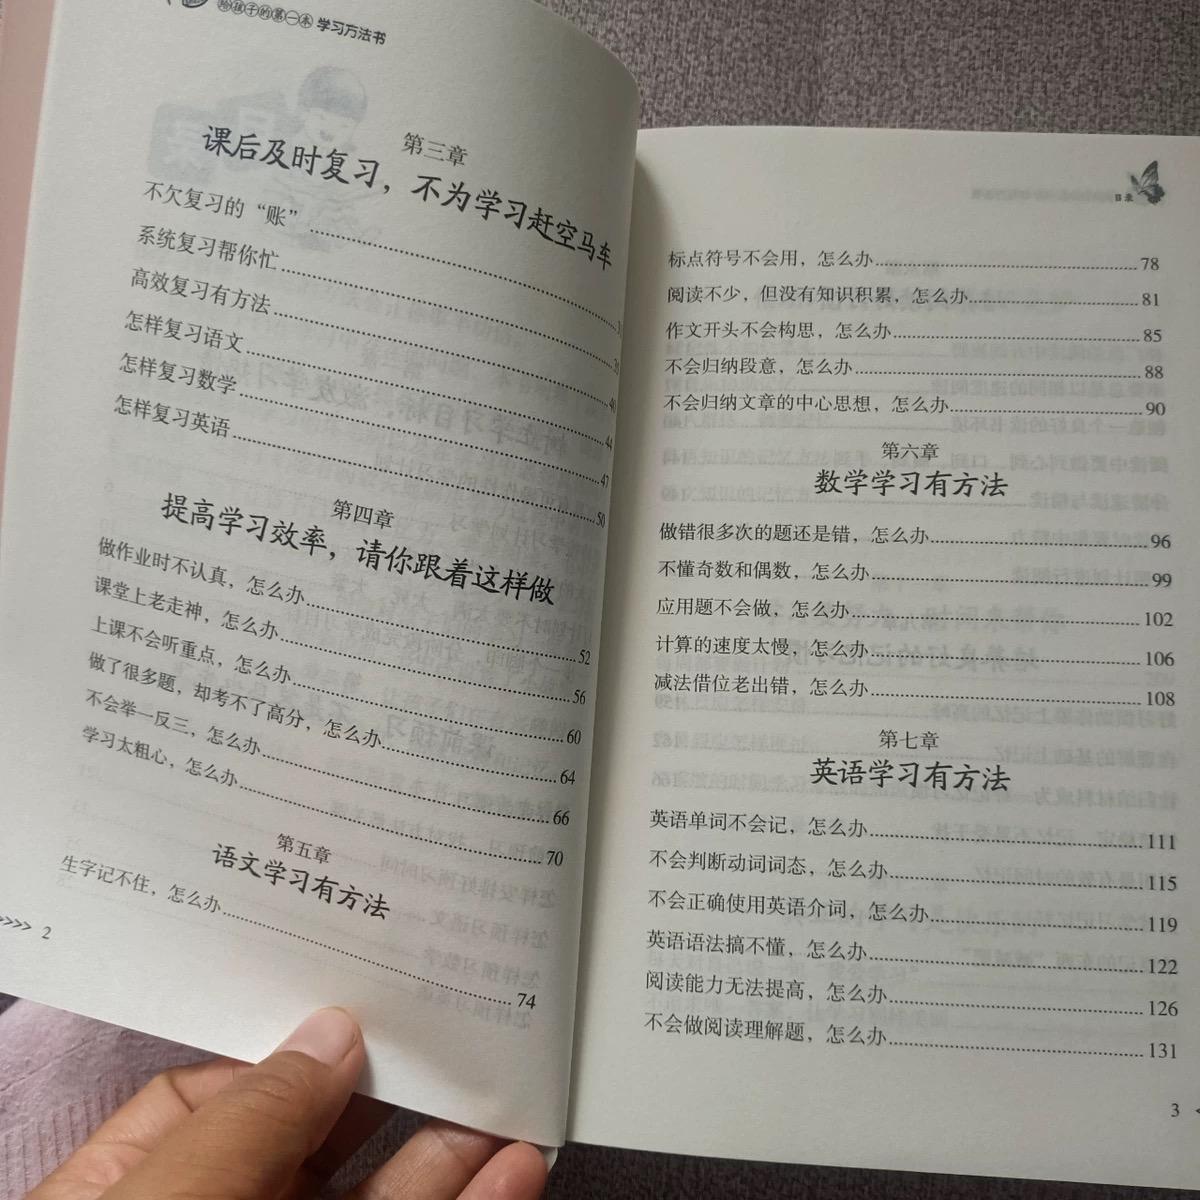 给孩子的第一本 学习方法书
第三章
课后及时复习，不为学习赶空马车
不欠复习的“账”
系统复习帮你忙
高效复习有方法 40
怎样复习语文 44
怎样复习数学 47
怎样复习英语 50
第四章
提高学习效率，请你跟着这样做
做作业时不认真，怎么办 52
课堂上老走神，怎么办 56
上课不会听重点，怎么办 60
做了很多题，却考不了高分，怎么办 64
不会举一反三，怎么办 66
学习太粗心，怎么办 70
第五章
语文学习有方法
生字记不住，怎么办 74
>>>>> 2
目录
标点符号不会用，怎么办 78
阅读不少，但没有知识积累，怎么办 81
作文开头不会构思，怎么办 85
不会归纳段意，怎么办 88
不会归纳文章的中心思想，怎么办 90
第六章
数学学习有方法
做错很多次的题还是错，怎么办 96
不懂奇数和偶数，怎么办 99
应用题不会做，怎么办 102
计算的速度太慢，怎么办 106
减法借位老出错，怎么办 108
第七章
英语学习有方法
英语单词不会记，怎么办 111
不会判断动词词态，怎么办 115
不会正确使用英语介词，怎么办 119
英语语法搞不懂，怎么办 122
阅读能力无法提高，怎么办 126
不会做阅读理解题，怎么办 131
3